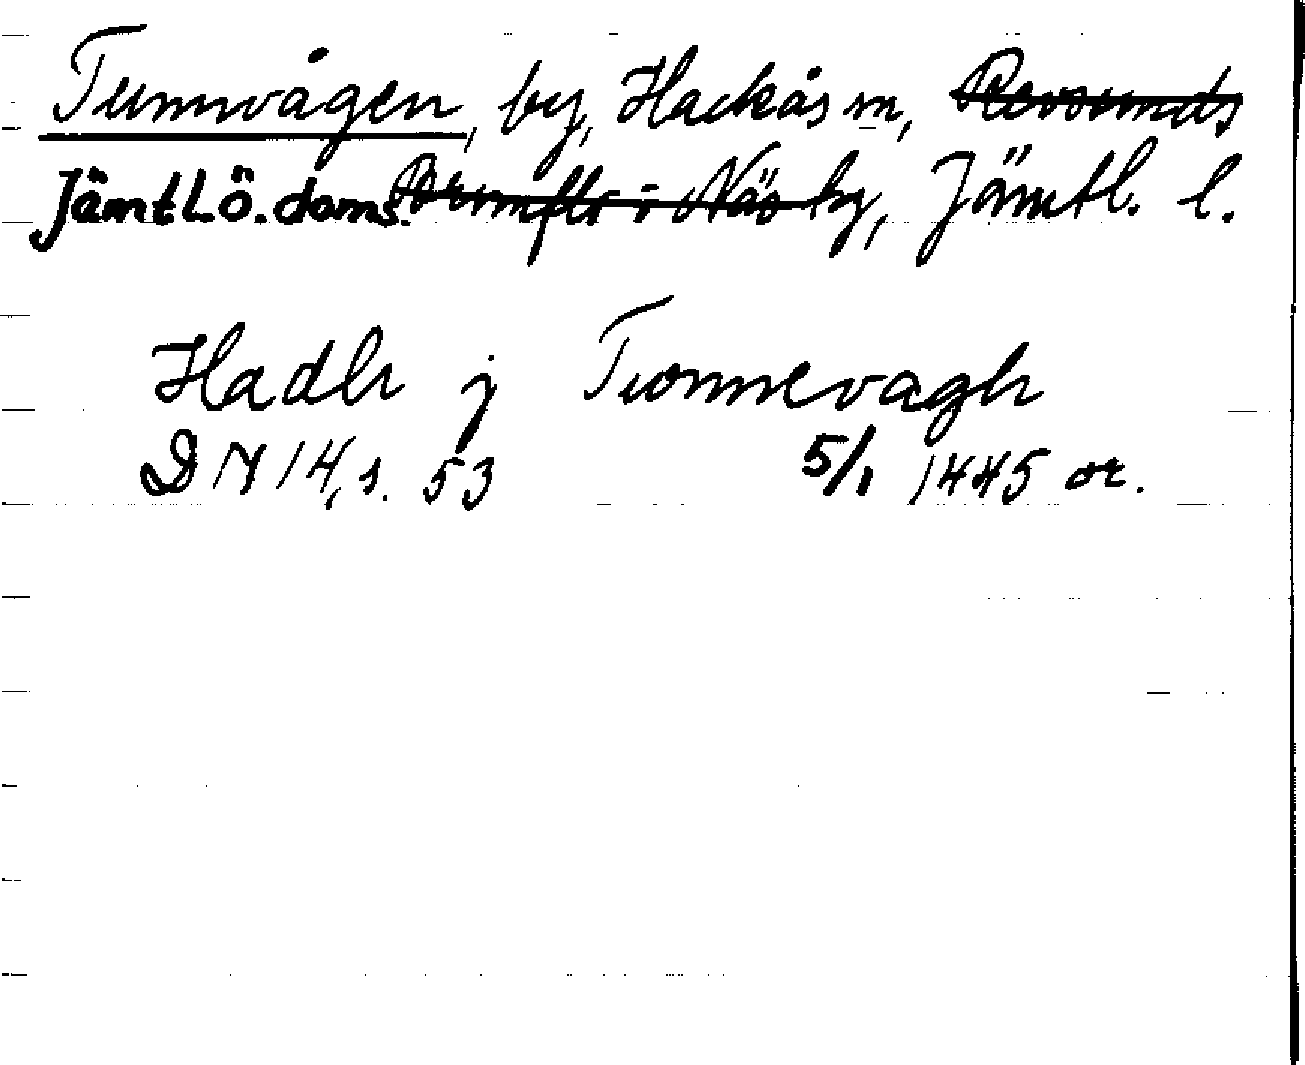 Tunnvågen, by, Hackås sn, Revsunds
Jämtl. ö. doms. by, Jämtl. l.
Hadh j Twnnevagh
DN 14, s. 53 5/1 1445 or.